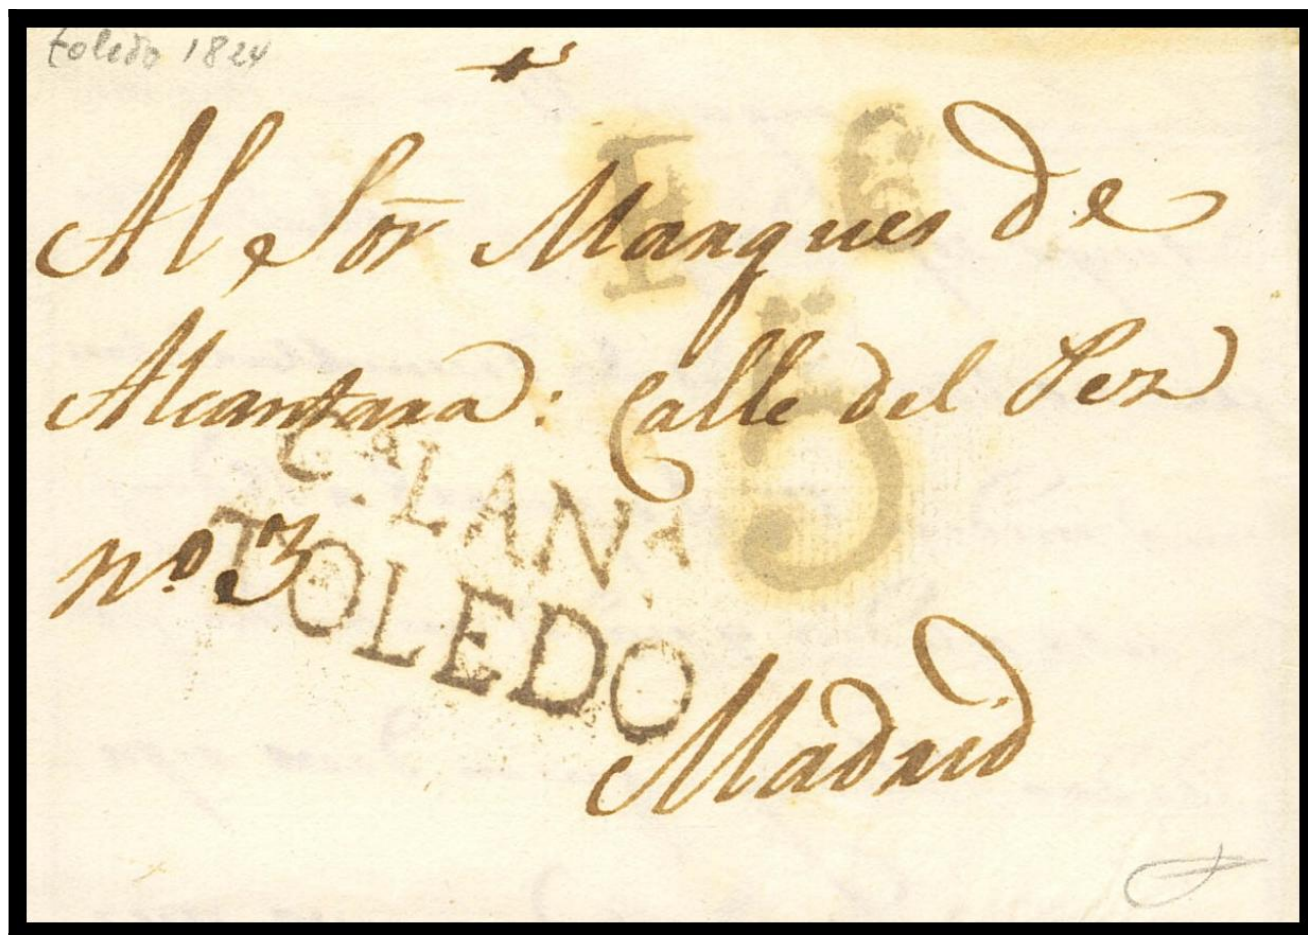 toledo 1824
Al Sor Marques de
Alcantara: Calle del Pez
nº 3
Cª LANª
TOLEDO
Madrid